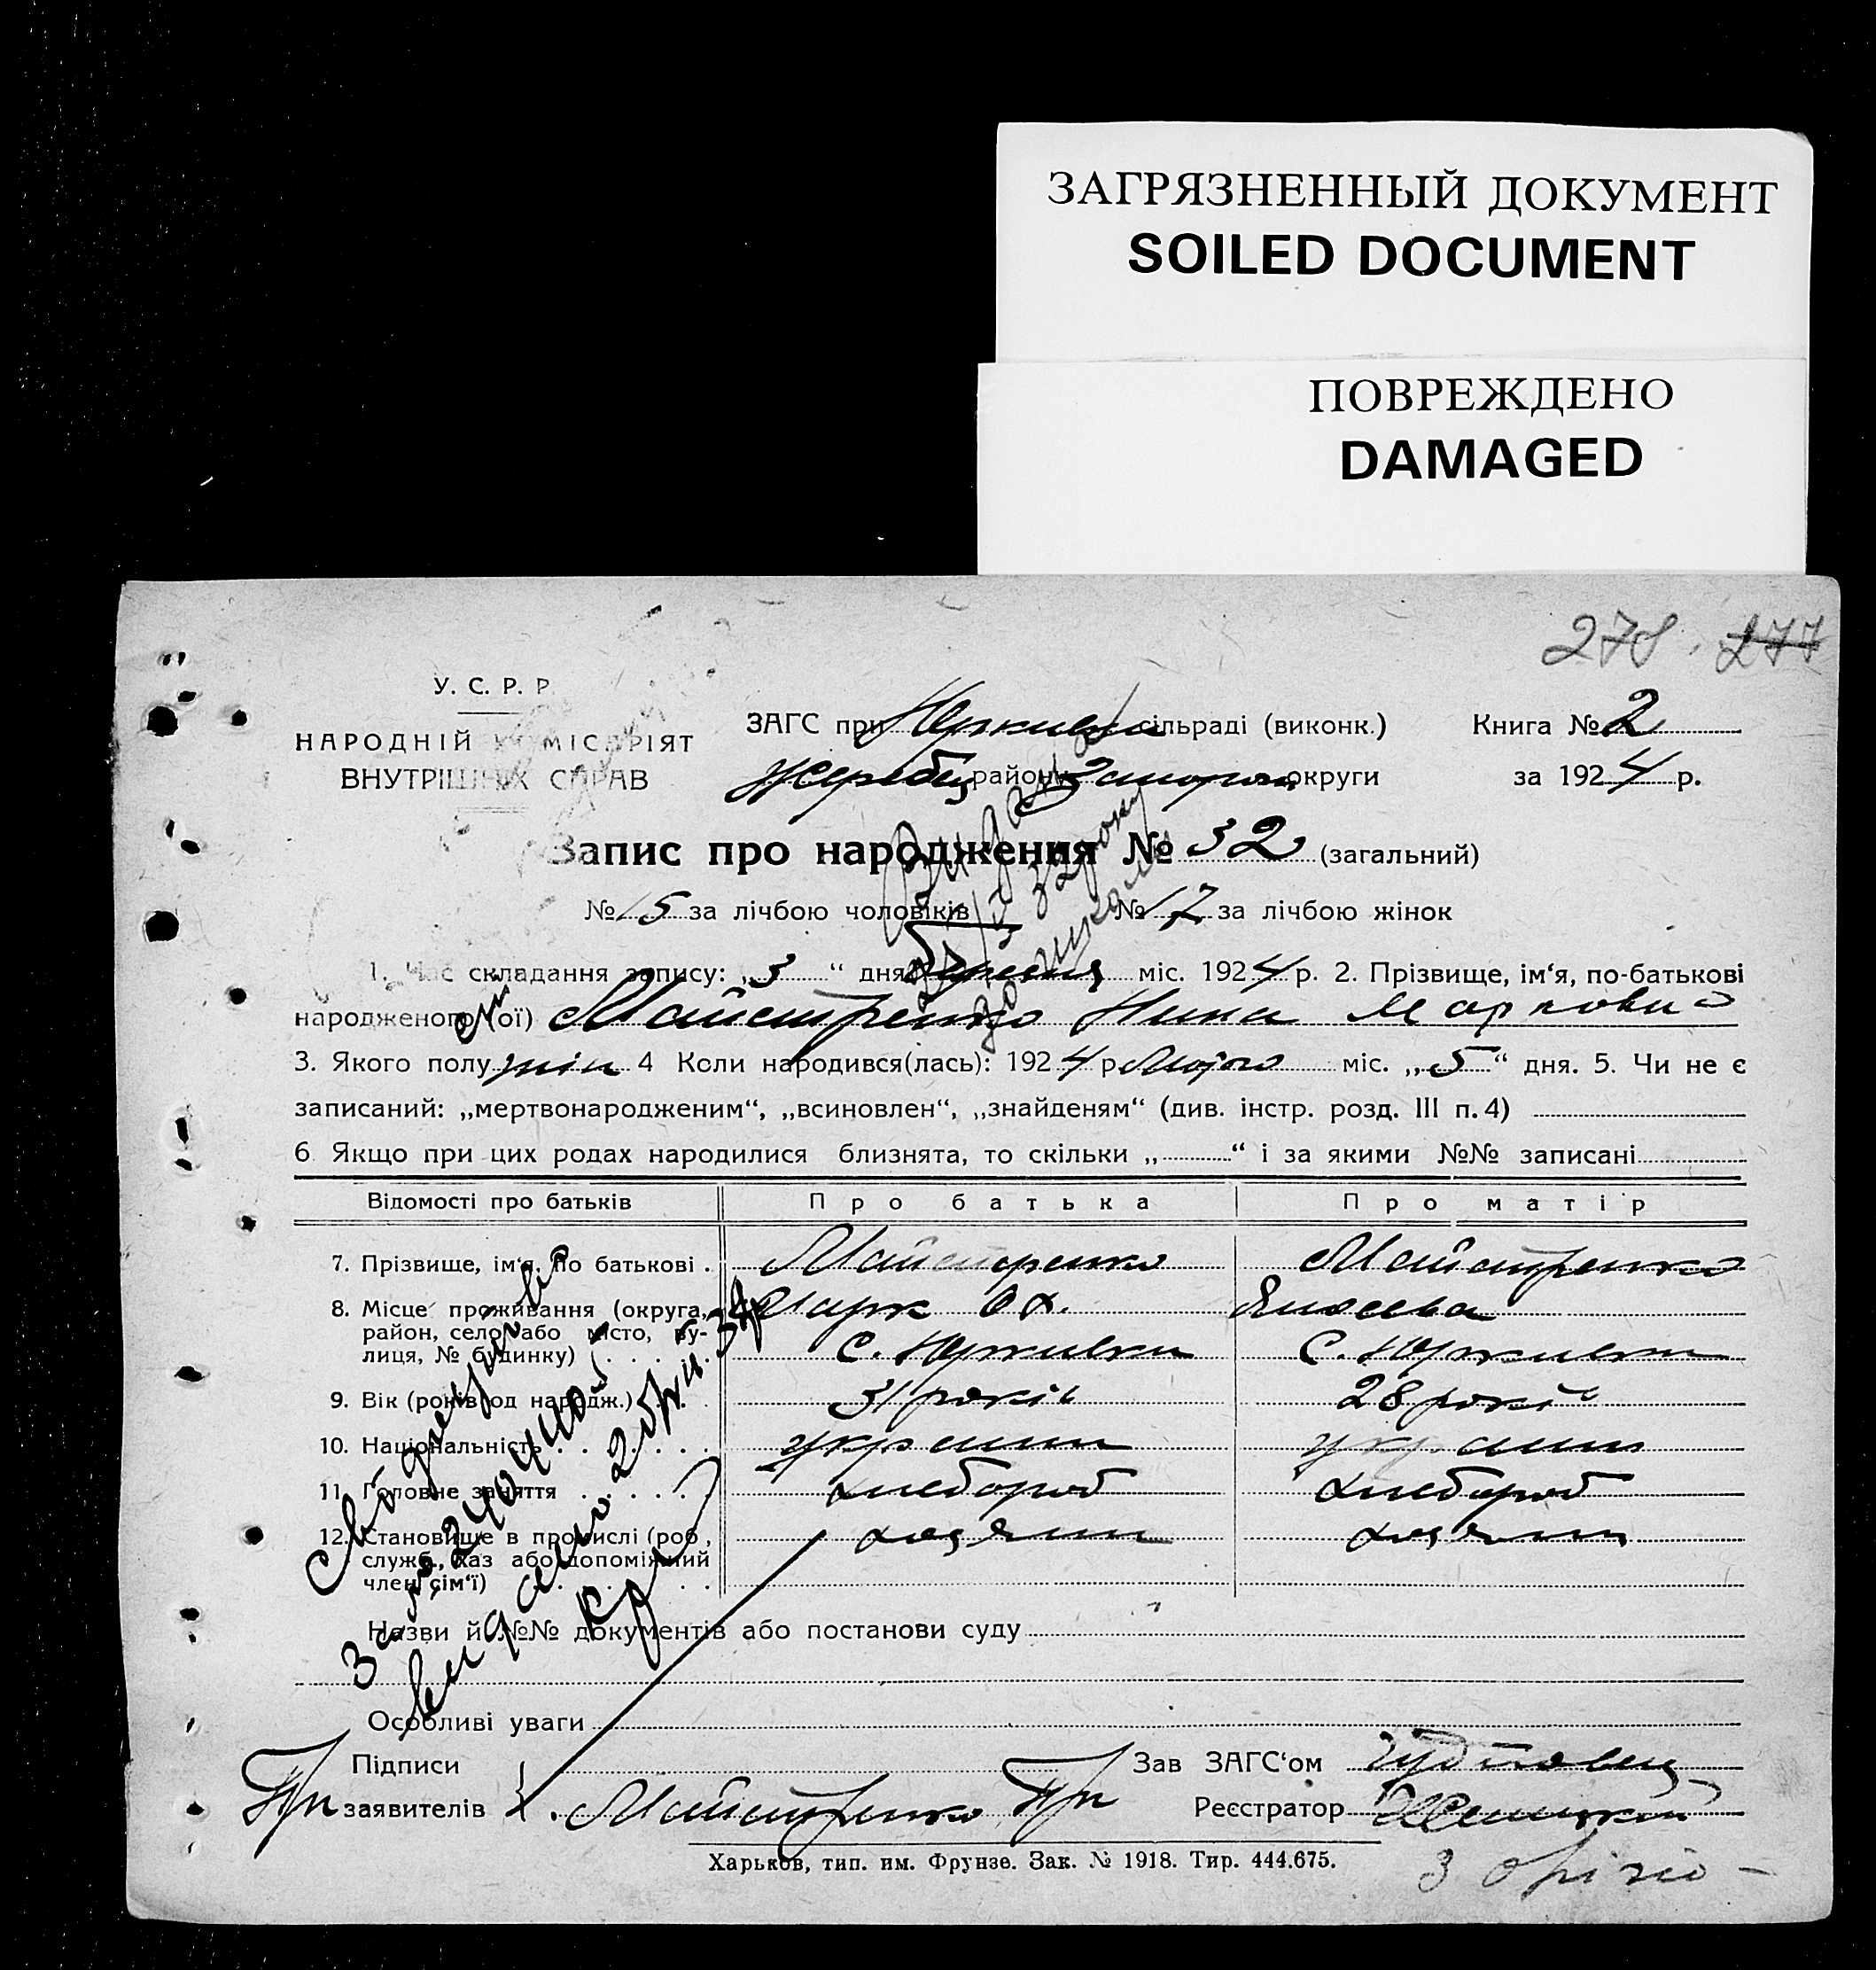 ЗАГРЯЗНЕННЫЙ ДОКУМЕНТ
SOILED DOCUMENT
ПОВРЕЖДЕНО
DAMAGED
278. 277
У. С. Р. Р.
НАРОДНІЙ КОМІСАРІЯТ
ВНУТРІШНІХ СПРАВ
ЗАГС при Юрківській сільраді (виконк.) Книга № 2
Жеребец району Запорож округи за 1924 р.
Запис про народження № 32 (загальний)
№ 15 за лічбою чоловіків № 17 за лічбою жінок
1. Час складання запису: „3“ дня березня міс. 1924 р. 2. Прізвище, ім‘я, по-батькові
народженого (ої) Майстренко Нина Маркови
3. Якого полу жін 4 Коли народився(лась): 1924 р Лютого міс. „5“ дня. 5. Чи не є
записаний: „мертвонародженим“, „всиновлен“, „знайденям“ (див. інстр. розд. III п. 4)
6 Якщо при цих родах народилися близнята, то скільки „ “ і за якими №№ записані
Відомості про батьків Про батька Про матір
7. Прізвище, ім‘я, по батькові . Майстренко Майстренко
8. Місце проживання (округа, Марк
район, село або місто, ву-
лиця, № будинку) с. Юрківки с. Юрківки
9. Вік (років од народж.) 31 років 28 років
10. Національність україни україни
11. Головне заняття хлебороб хлебороб
12. Становище в промислі (роб., хозяин хозяин
служб., хаз або допоміжний
член сім‘ї)
Назви й №№ документів або постанови суду
Особливі уваги
Підписи Зав ЗАГС‘ом
заявителів Майстренко Реєстратор
Харьков, тип. им. Фрунзе. Зак. № 1918. Тир. 444.675.